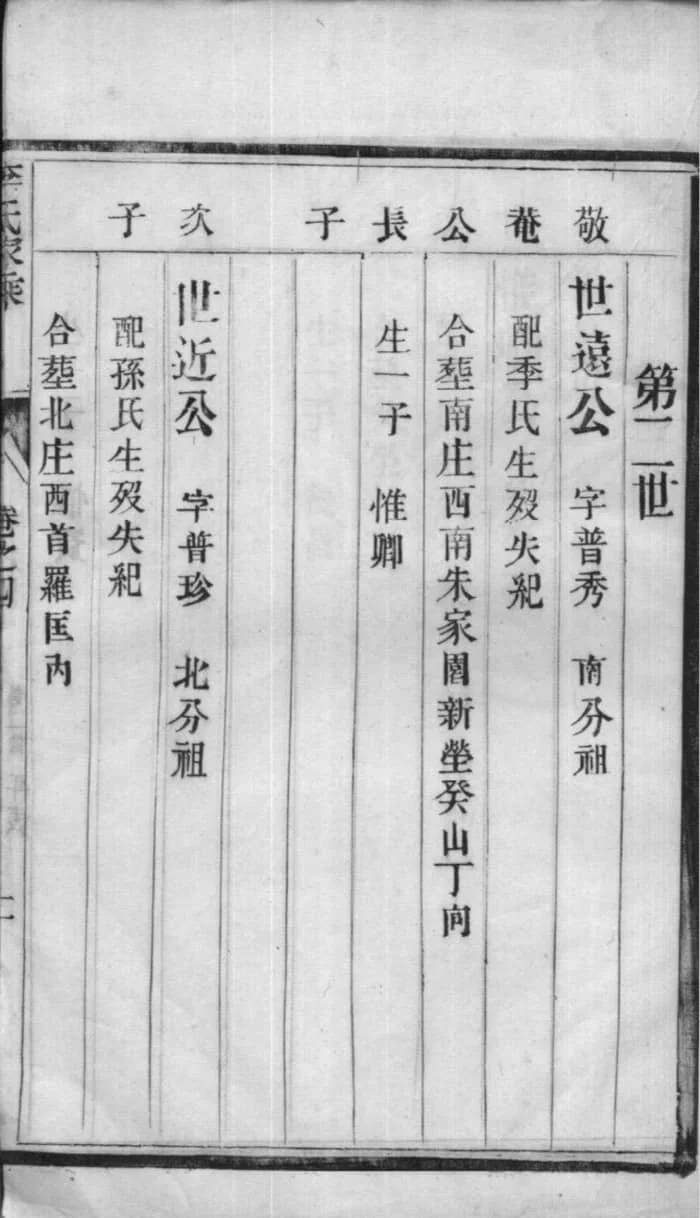 第二世
敬 世遠公 字普秀 南分祖
菴 配季氏生殁失紀
公 合塟南庄西南朱家園新塋癸山丁向
長 生一子 惟卿
子
次 世近公 字普珍 北分祖
子 配孫氏生殁失紀
合塟北庄西首羅匡內
李氏家乘
卷之四